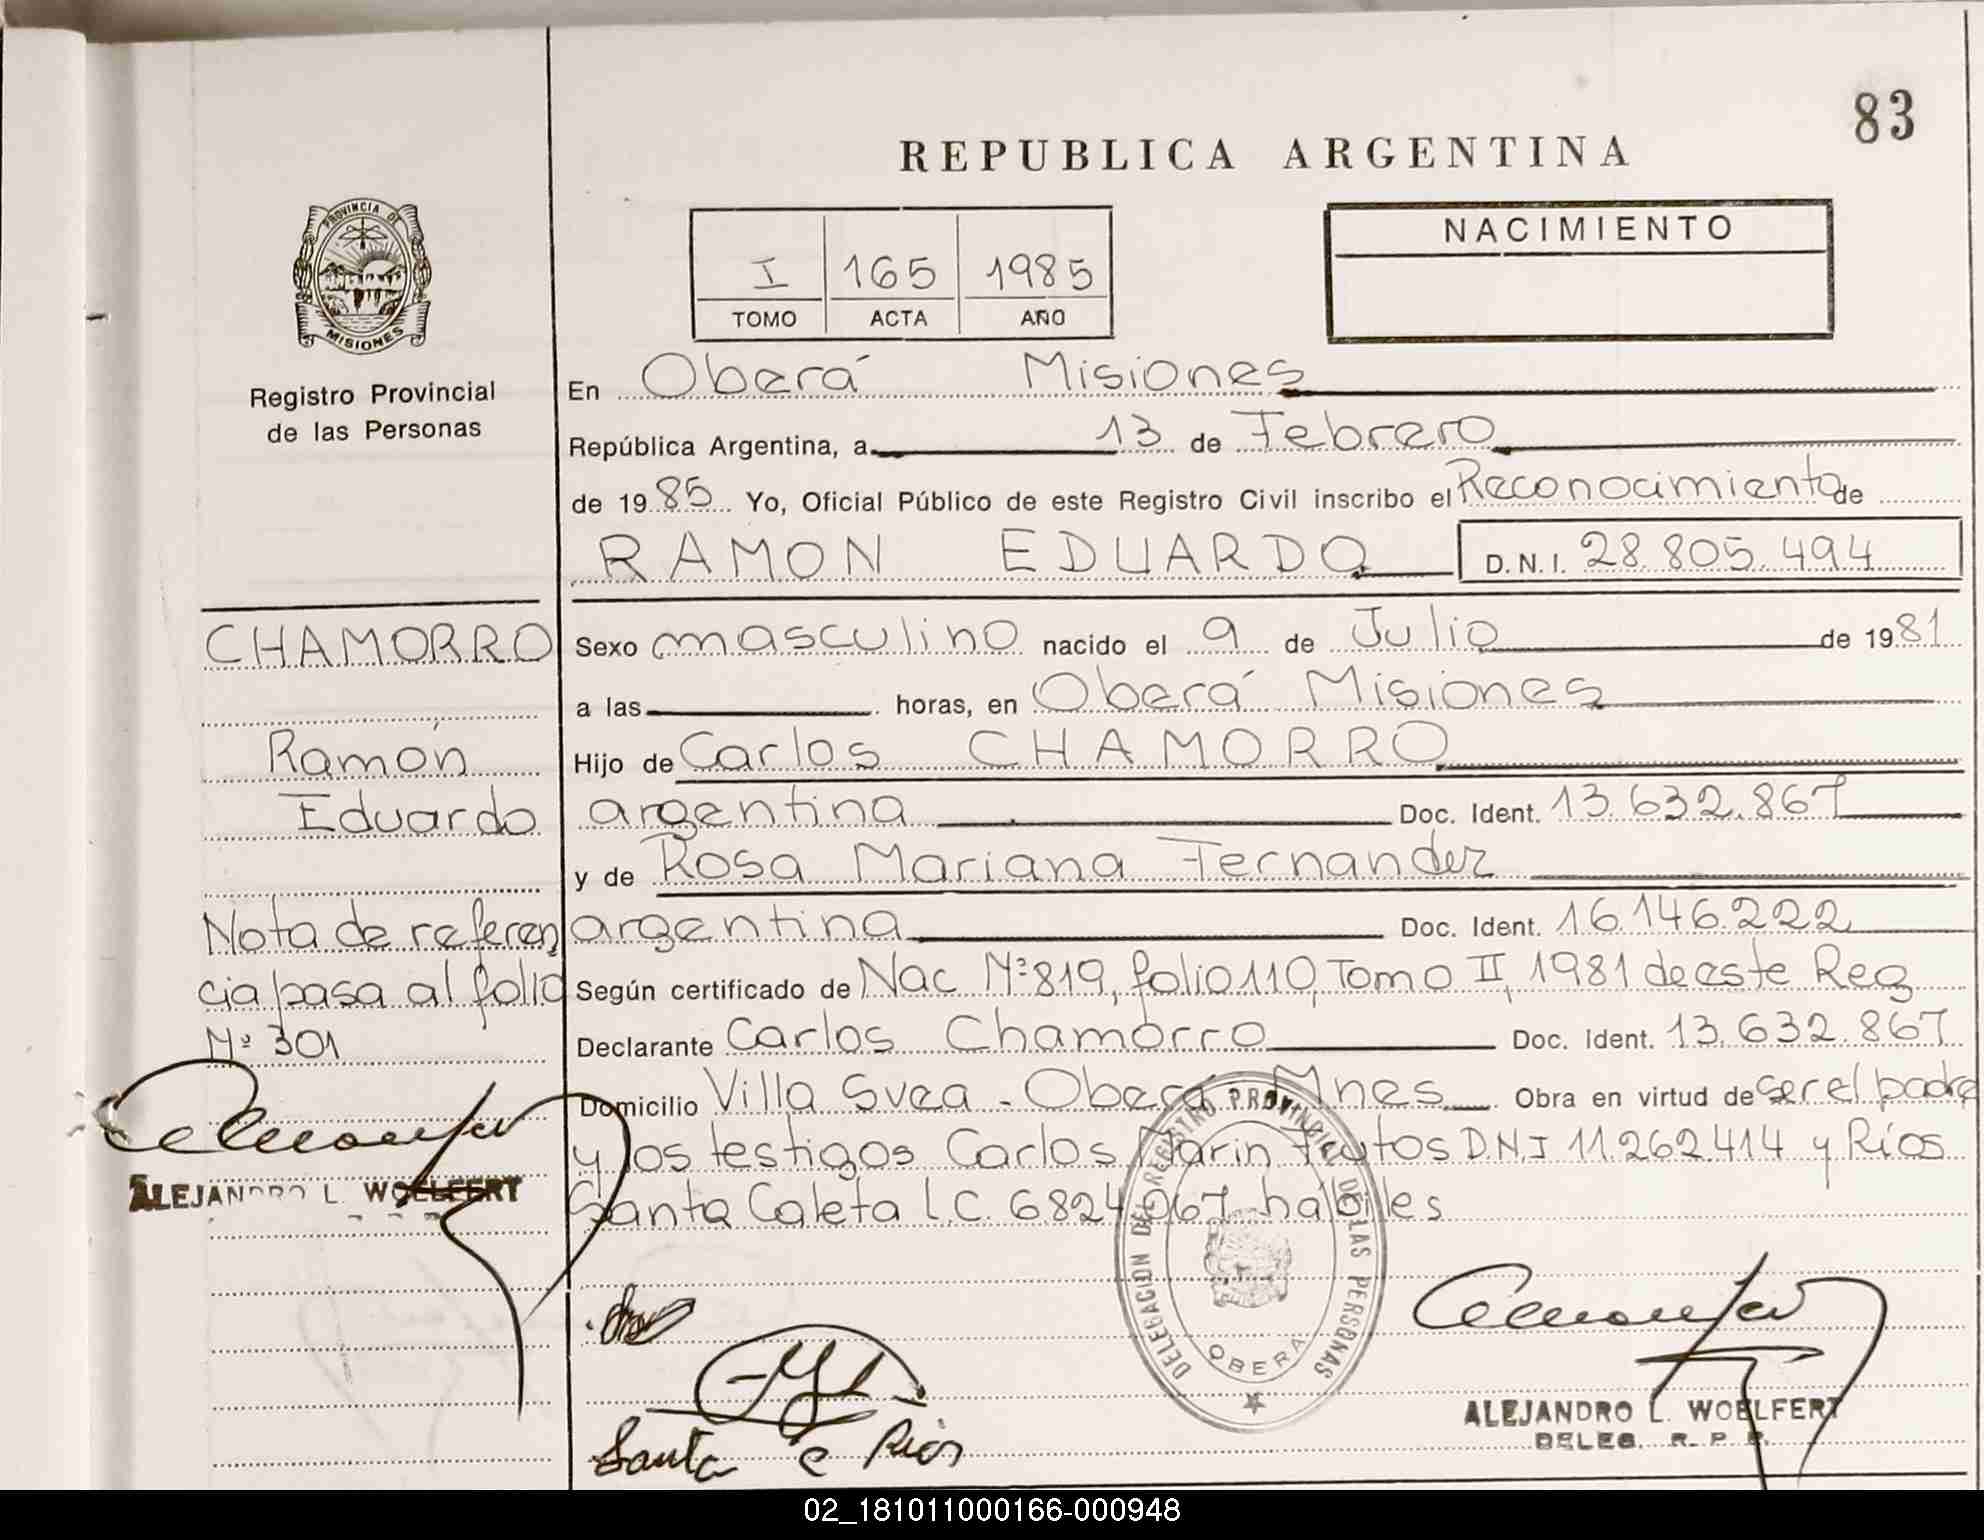 83
REPUBLICA ARGENTINA
PROVINCIA DE
MISIONES
Registro Provincial
de las Personas
I 165 1985
TOMO ACTA AÑO
NACIMIENTO
En Oberá Misiones
República Argentina, a 13 de Febrero
de 1985 Yo, Oficial Público de este Registro Civil inscribo el Reconocimiento de
RAMON EDUARDO D.N.I. 28.805.494
CHAMORRO
Ramón
Eduardo
Nota de referen
cia pasa al folio
Nº 301
ALEJANDRO L. WOELFERT
Sexo masculino nacido el 9 de Julio de 1981
a las horas, en Oberá Misiones
Hijo de Carlos CHAMORRO
argentina Doc. Ident. 13.632.867
y de Rosa Mariana Fernandez
argentina Doc. Ident. 16.146.222
Según certificado de Nac Nº 819, folio 110, Tomo II, 1981 de este Reg
Declarante Carlos Chamorro Doc. Ident. 13.632.867
Domicilio Villa Svea - Oberá Mnes Obra en virtud de ser el padre
y los testigos Carlos Marin Frutos D.N.I 11.262.414 y Ríos
Santa Caleta L.C. 6.824.067 hábiles
DELEGACION DEL REGISTRO PROVINCIAL DE LAS PERSONAS
OBERA
Santa C Rios
ALEJANDRO L. WOELFERT
DELEG. R. P. P.
02_181011000166-000948